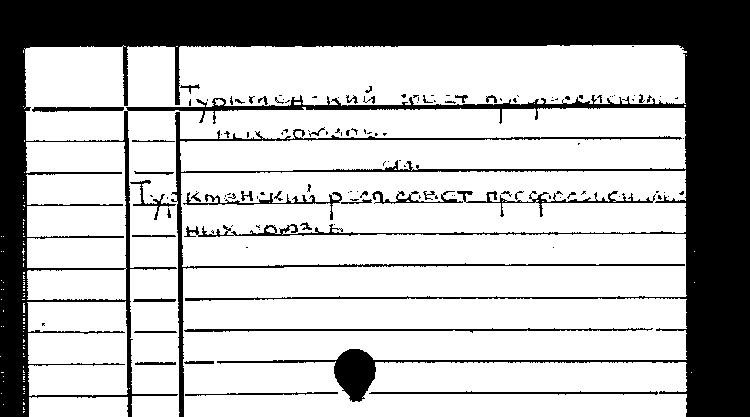 Туркменский совет профессиональ-
ных союзов.
см.
Туркменский респ. совет профессиональ-
ных союзов.